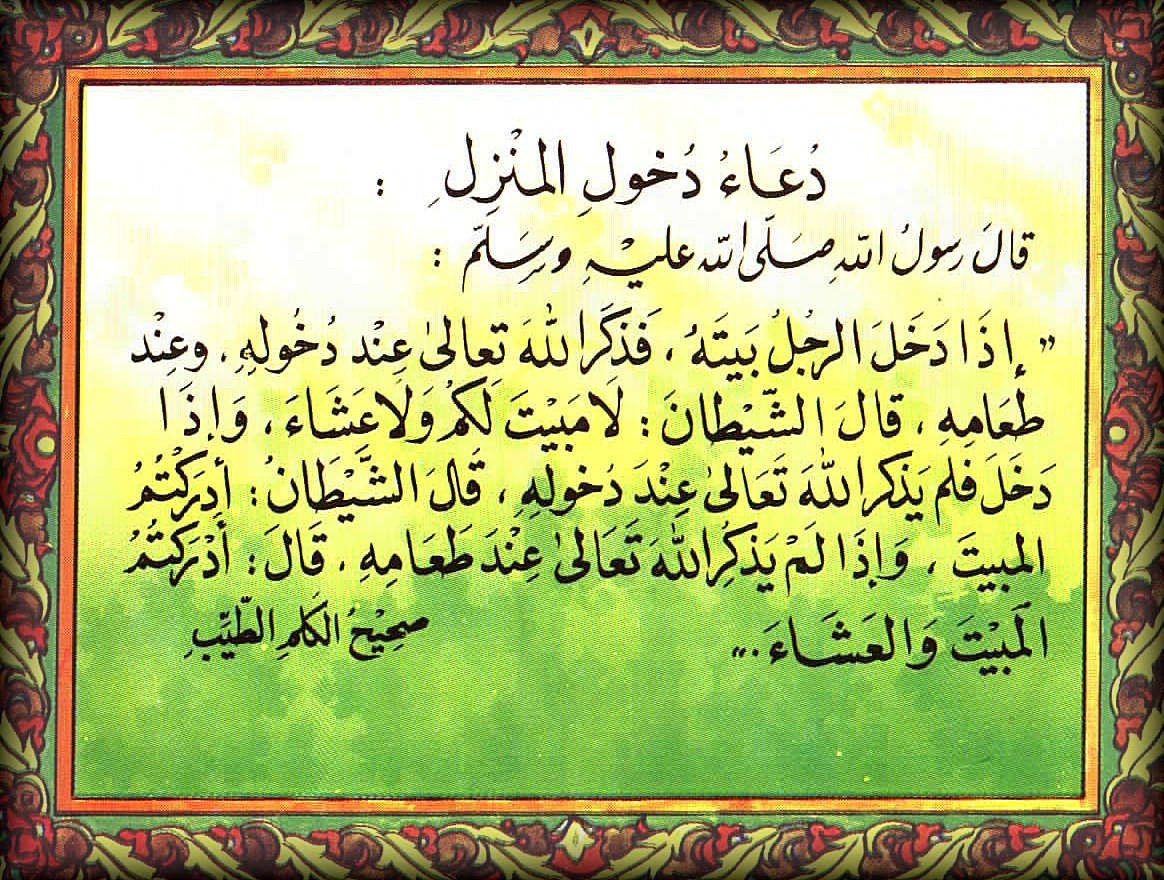 دُعَاءُ دُخولِ المَنْزِلِ :
قالَ رسولُ اللهِ صَلّى الله عليْهِ وسَلَّمَ :
” إِذَا دَخَلَ الرجُلُ بَيتَهُ ، فَذكَرَ اللهَ تَعالىٰ عِنْد دُخُولِهِ ، وعِنْد
طَعَامِهِ ، قالَ الشَّيْطانَ : لَا مَبيْتَ لَكُمْ وَلَا عَشَاءَ ، وَإِذَا
دَخَلَ فلم يَذكر اللهَ تَعَالىٰ عِنْدَ دُخولِهِ ، قَالَ الشَّيْطَانُ : أدرَكْتُمُ
المبيتَ ، وَإِذَا لَمْ يَذكُرِ اللهَ تَعَالىٰ عِنْدَ طَعَامِهِ ، قَالَ : أَدْرَكْتُمُ
المَبيْتَ وَالعَشَاءَ .. “ صَحِيْحُ الكَلمِ الطَّيِّبِ